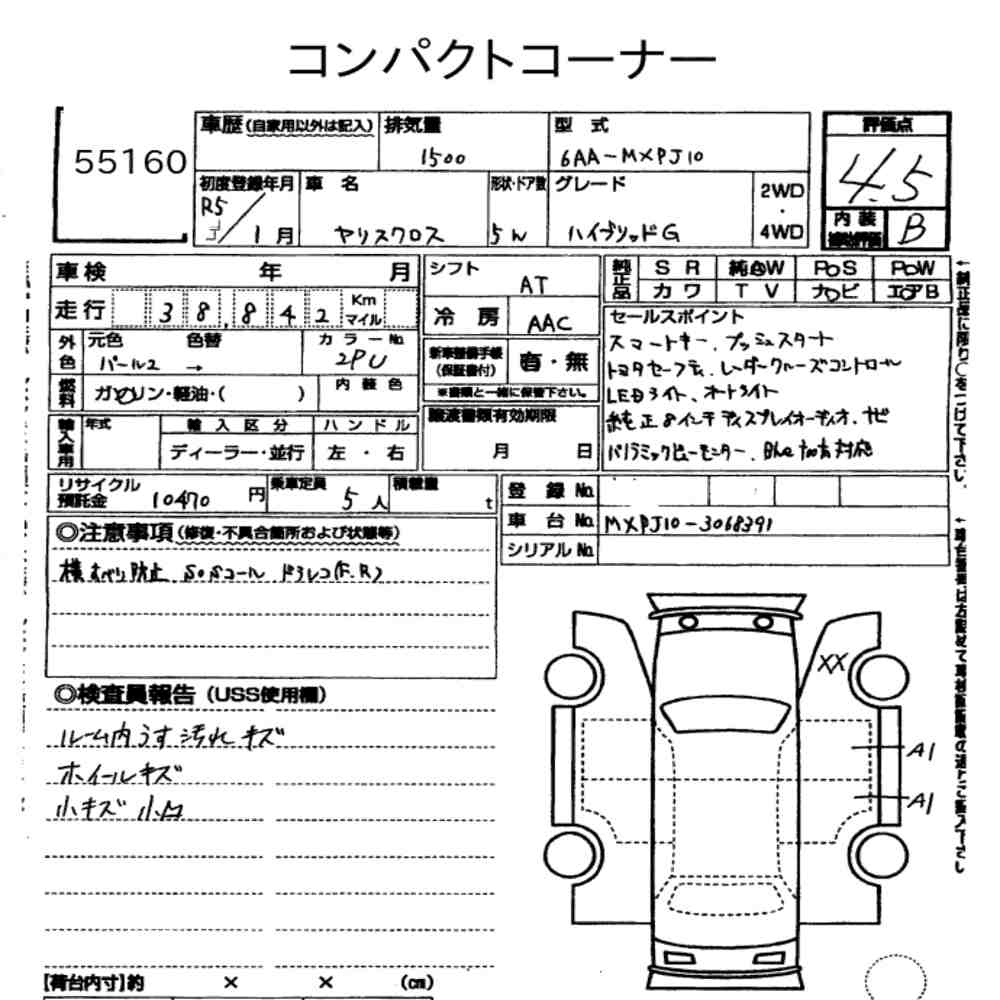 コンパクトコーナー
55160
車歴(自家用以外は記入) 排気量 型式 評価点
1500 6AA-MXPJ10 4.5
初度登録年月 車名 形状・ドア数 グレード 2WD・4WD 内装 B
R5/1月 ヤリスクロス 5W ハイブリッドG
車検 年 月 シフト AT
純正品 SR 純AW PS PW
カワ TV ナビ エアB
走行 38,842 Km マイル 冷房 AAC
外色 元色 色替 カラーNo.
パール2 → 2PU
新車整備手帳(保証書付) 有・無
※書類と一緒に保管下さい。
燃料 ガソリン・軽油・( ) 内装色
譲渡書類有効期限 月 日
輸入車用 年式 輸入区分 ハンドル
ディーラー・並行 左・右
セールスポイント
スマートキー、プッシュスタート
トヨタセーフティ、レーダークルーズコントロール
LEDライト、オートライト
純正8インチディスプレイオーディオ、ナビ
パノラミックビューモニター、Bluetooth対応
リサイクル預託金 10470円 乗車定員 5人 積載量 t
登録No.
車台No. MXPJ10-3068391
シリアルNo.
◎注意事項(修復・不具合箇所および状態等)
横すべり防止 SOSコール ドラレコ(F.R)
◎検査員報告(USS使用欄)
ルーム内うす汚れ キズ
ホイールキズ
小キズ 小凹
XX
A1
A1
【荷台内寸】約 × × (cm)